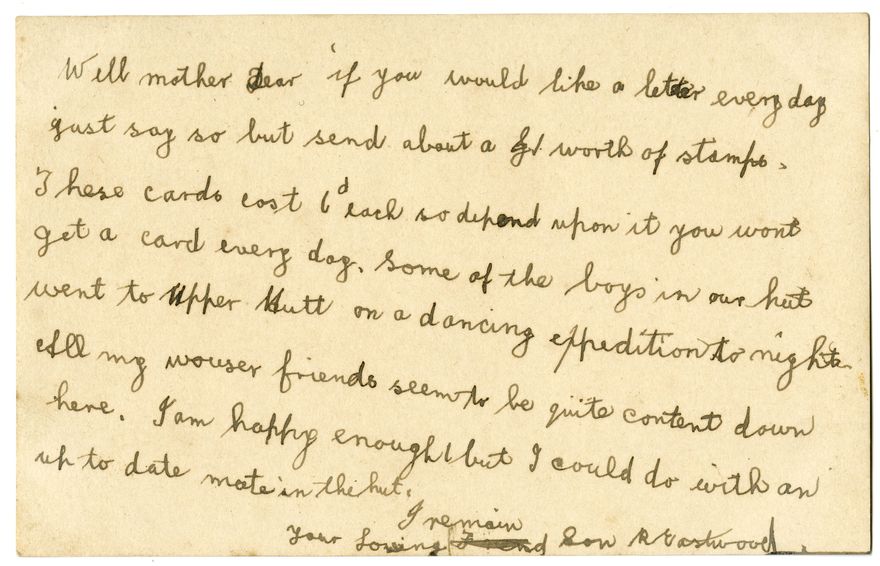 Well mother dear if you would like a letter every day
just say so but send about a £1 worth of stamps.
These cards cost 6d each so depend upon it you wont
get a card every day. Some of the boys in our hut
went to Upper Hutt on a dancing expedition to night.
All my wouser friends seem to be quite content down
here. I am happy enough but I could do with an
up to date mate in the hut.
I remain
Your Loving Son R Eastwood.